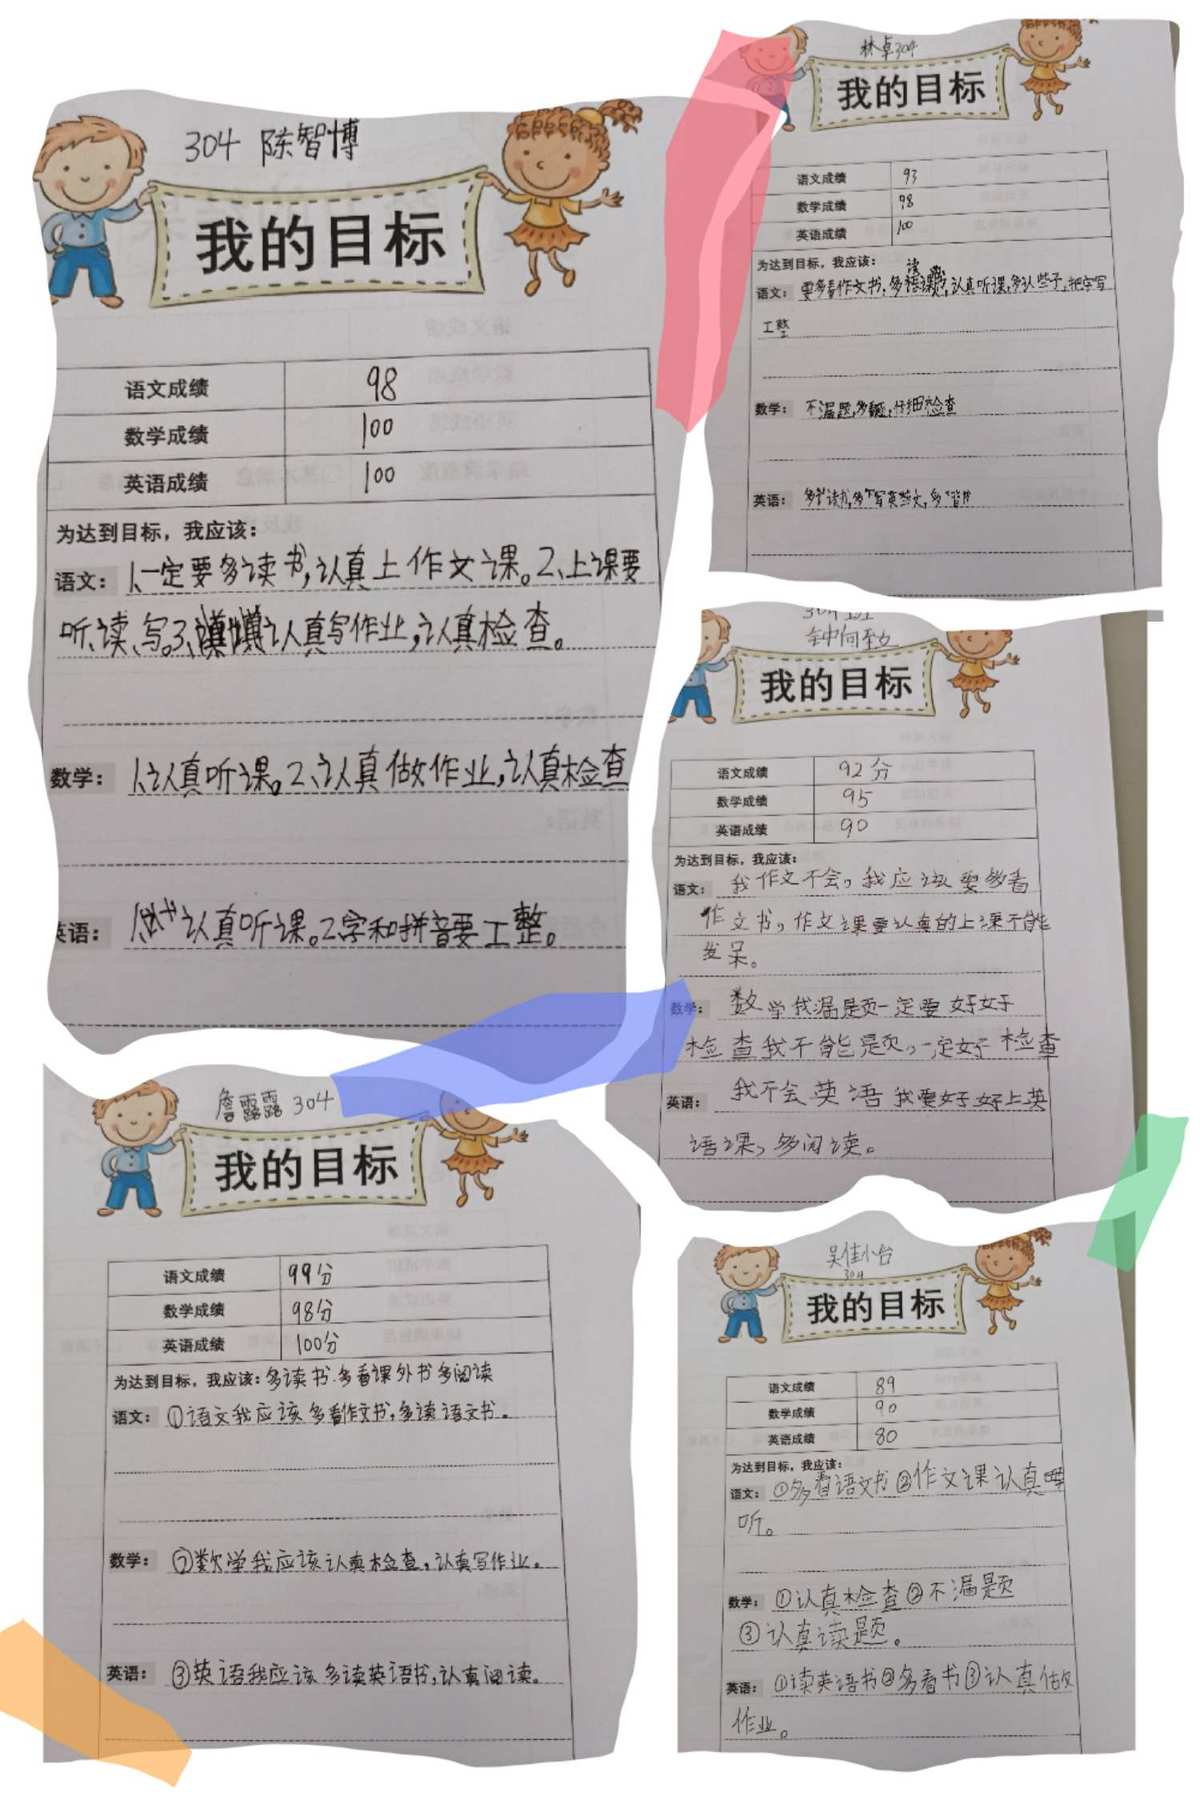 304 陈智博
我的目标
语文成绩 98
数学成绩 100
英语成绩 100
为达到目标，我应该：
语文：1、一定要多读书，认真上作文课。2、上课要
听、读、写。3、认真写作业，认真检查。
数学：1、认真听课。2、认真做作业，认真检查
英语：1、认真听课。2字和拼音要工整。
林卓304
我的目标
语文成绩 93
数学成绩 98
英语成绩 100
为达到目标，我应该：
语文：要多看作文书，多读课，认真听课，多认些子，把字写
工整
数学：不漏题，多题，仔细检查
英语：多读书，多写英文，多
304班
钟向
我的目标
语文成绩 92分
数学成绩 95
英语成绩 90
为达到目标，我应该：
语文：我作文不会，我应该要多看
作文书，作文课要认真的上课不能
发呆。
数学：数学我漏题一定要好好
检查我不能题，一定好检查
英语：我不会英语我要好好上英
语课，多阅读。
詹露露 304
我的目标
语文成绩 99分
数学成绩 98分
英语成绩 100分
为达到目标，我应该：多读书．多看课外书多阅读
语文：①语文我应该多看作文书，多读语文书。
数学：②数学我应该认真检查，认真写作业。
英语：③英语我应该多读英语书，认真阅读。
吴佳
304
我的目标
语文成绩 89
数学成绩 90
英语成绩 80
为达到目标，我应该：
语文：①多看语文书②作文课认真
听。
数学：①认真检查②不漏题
③认真读题。
英语：①读英语书②多看书③认真做
作业。